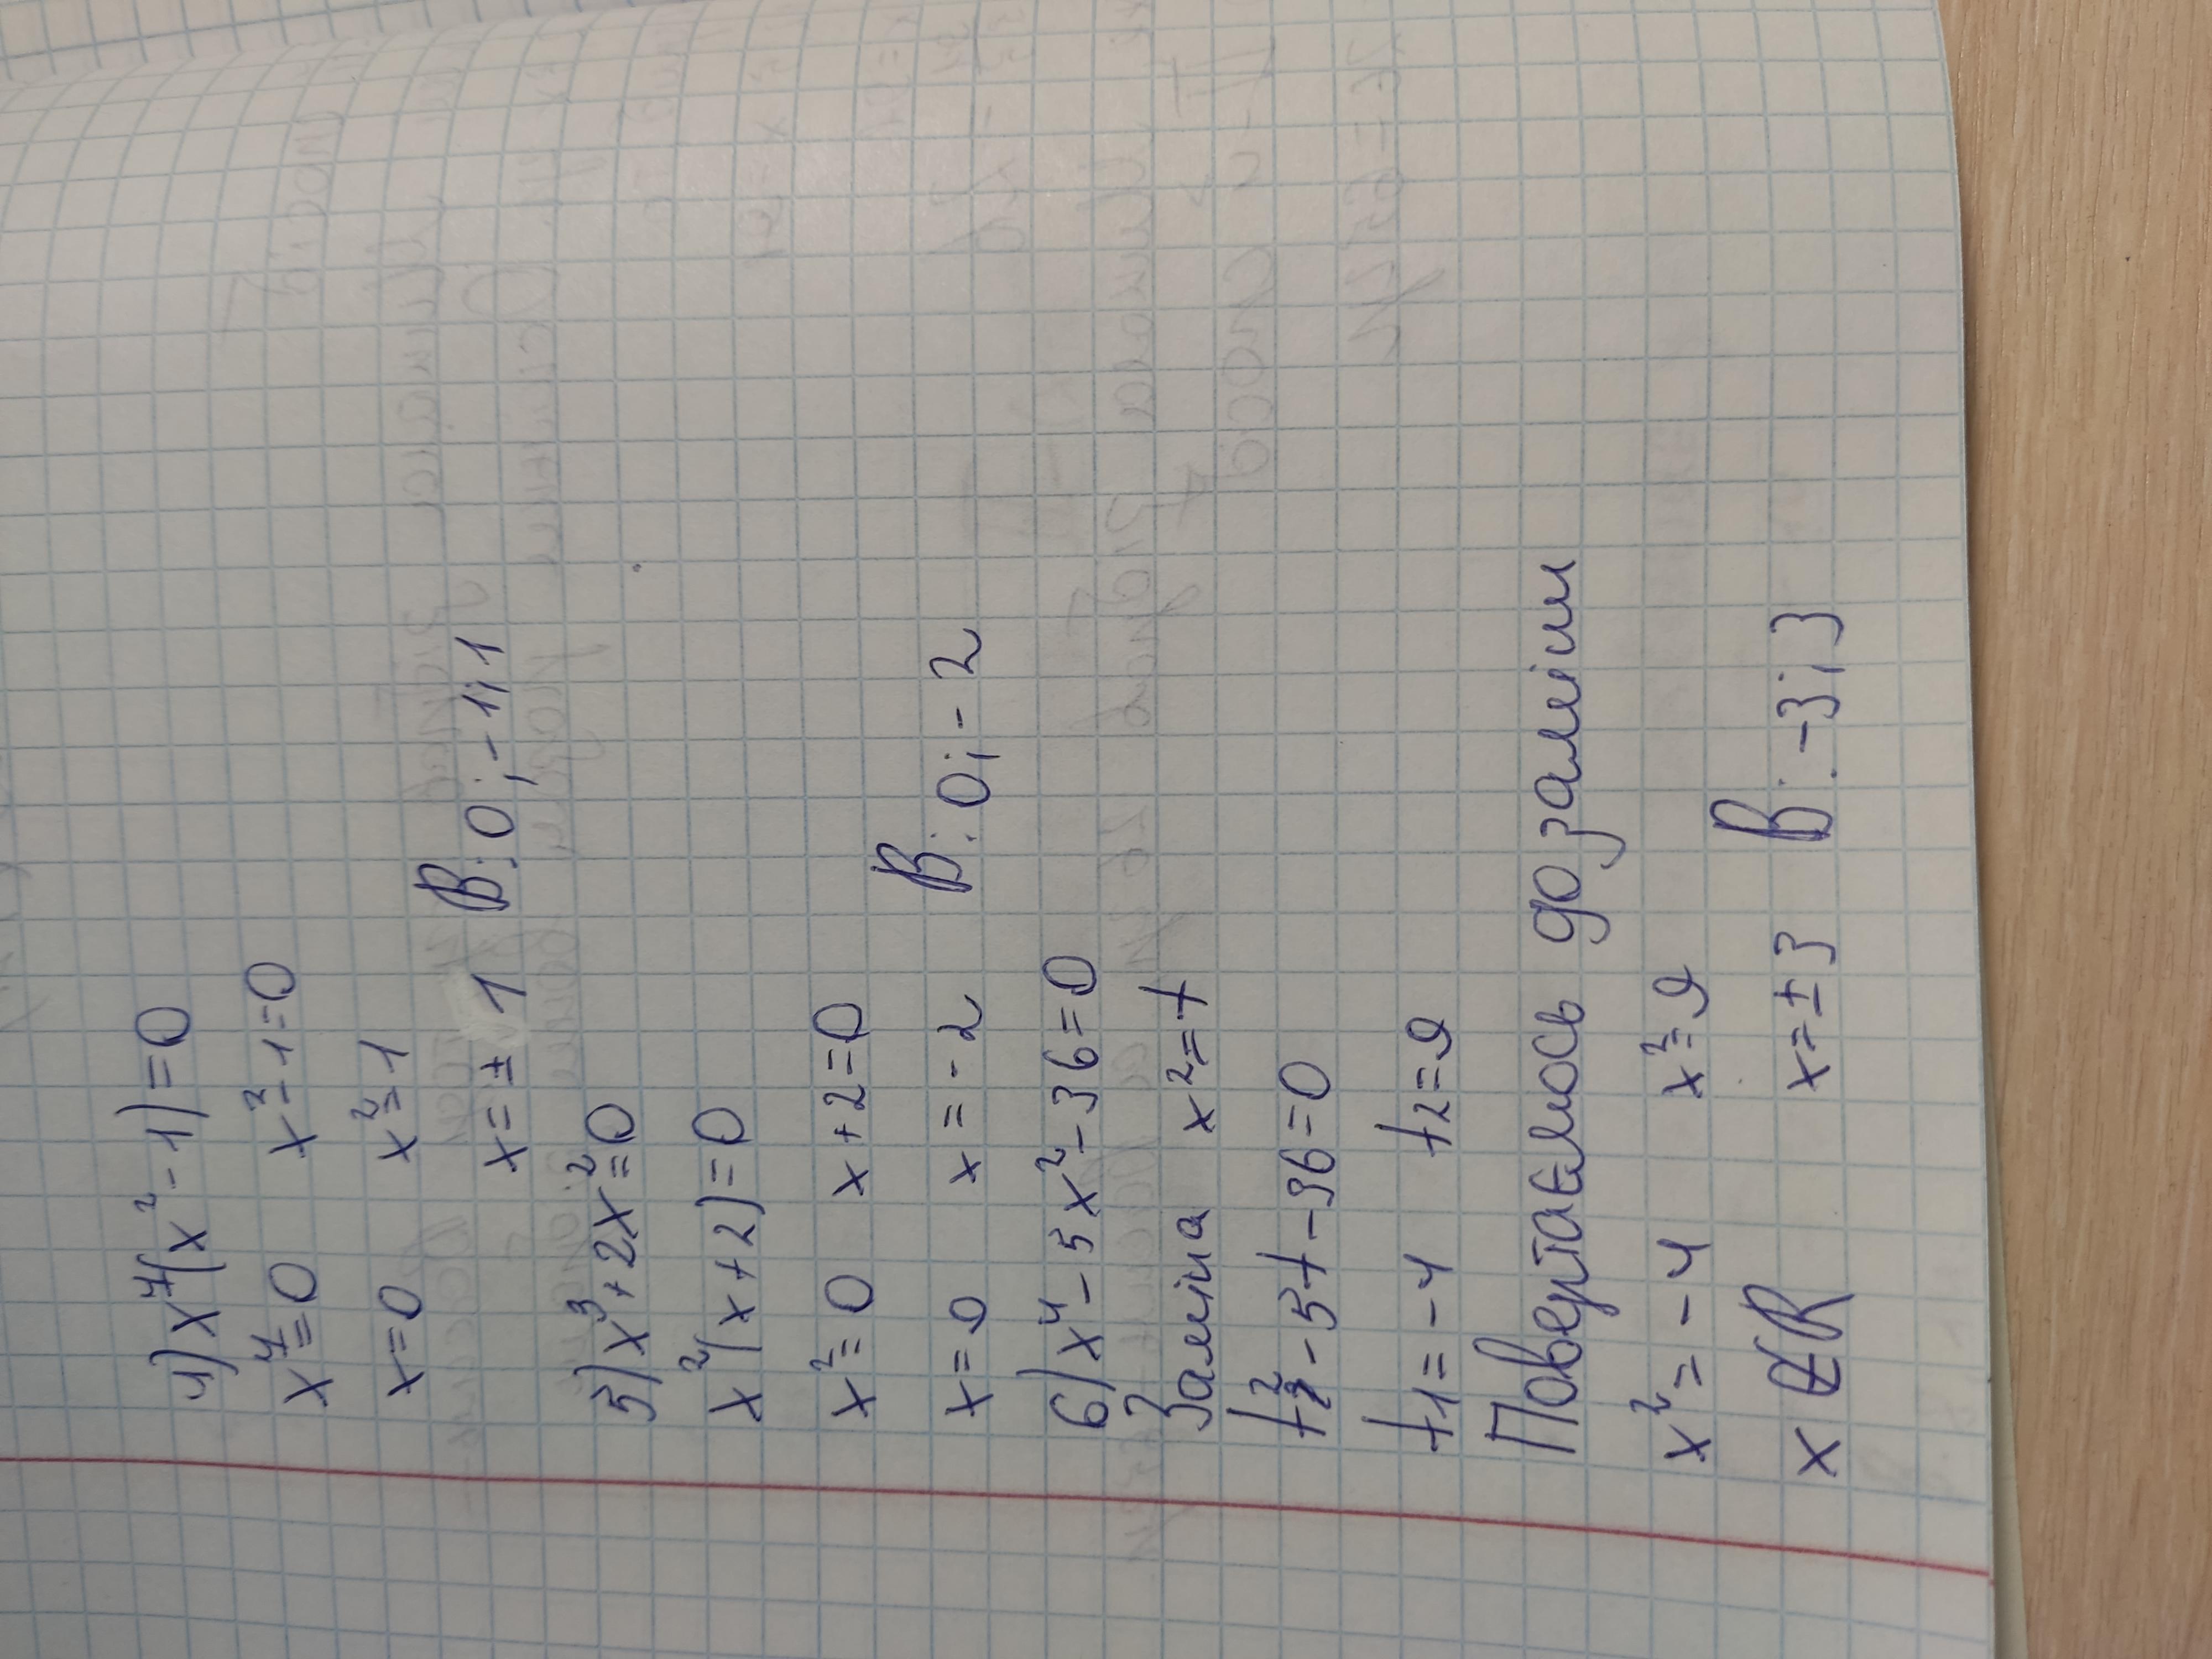 4) x⁴(x² - 1) = 0
x⁴ = 0 x² - 1 = 0
x = 0 x² = 1
x = ± 1 В: 0; -1; 1
5) x³ + 2x² = 0
x²(x + 2) = 0
x² = 0 x + 2 = 0
x = 0 x = -2 В: 0; -2
6) x⁴ - 5x² - 36 = 0
Заміна x² = t
t² - 5t - 36 = 0
t₁ = -4 t₂ = 9
Повертаємось до заміни
x² = -4 x² = 9
x ∉ R x = ±3 В: -3; 3